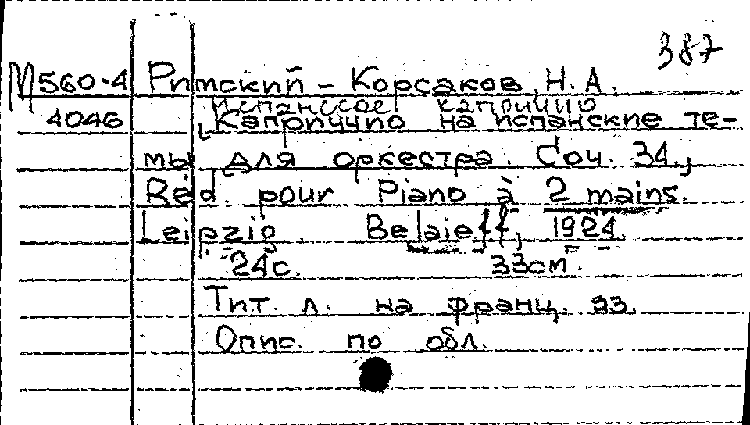 387
М560-4 Римский – Корсаков, Н. А.
Испанское каприччио
4046 Каприччио на испанские те-
мы для оркестра. Соч. 34.,
Red. pour Piano à 2 mains.
Leipzig. Belaieff, 1924.
24с. 33см.
Тит. л. на франц. яз.
Опис. по обл.